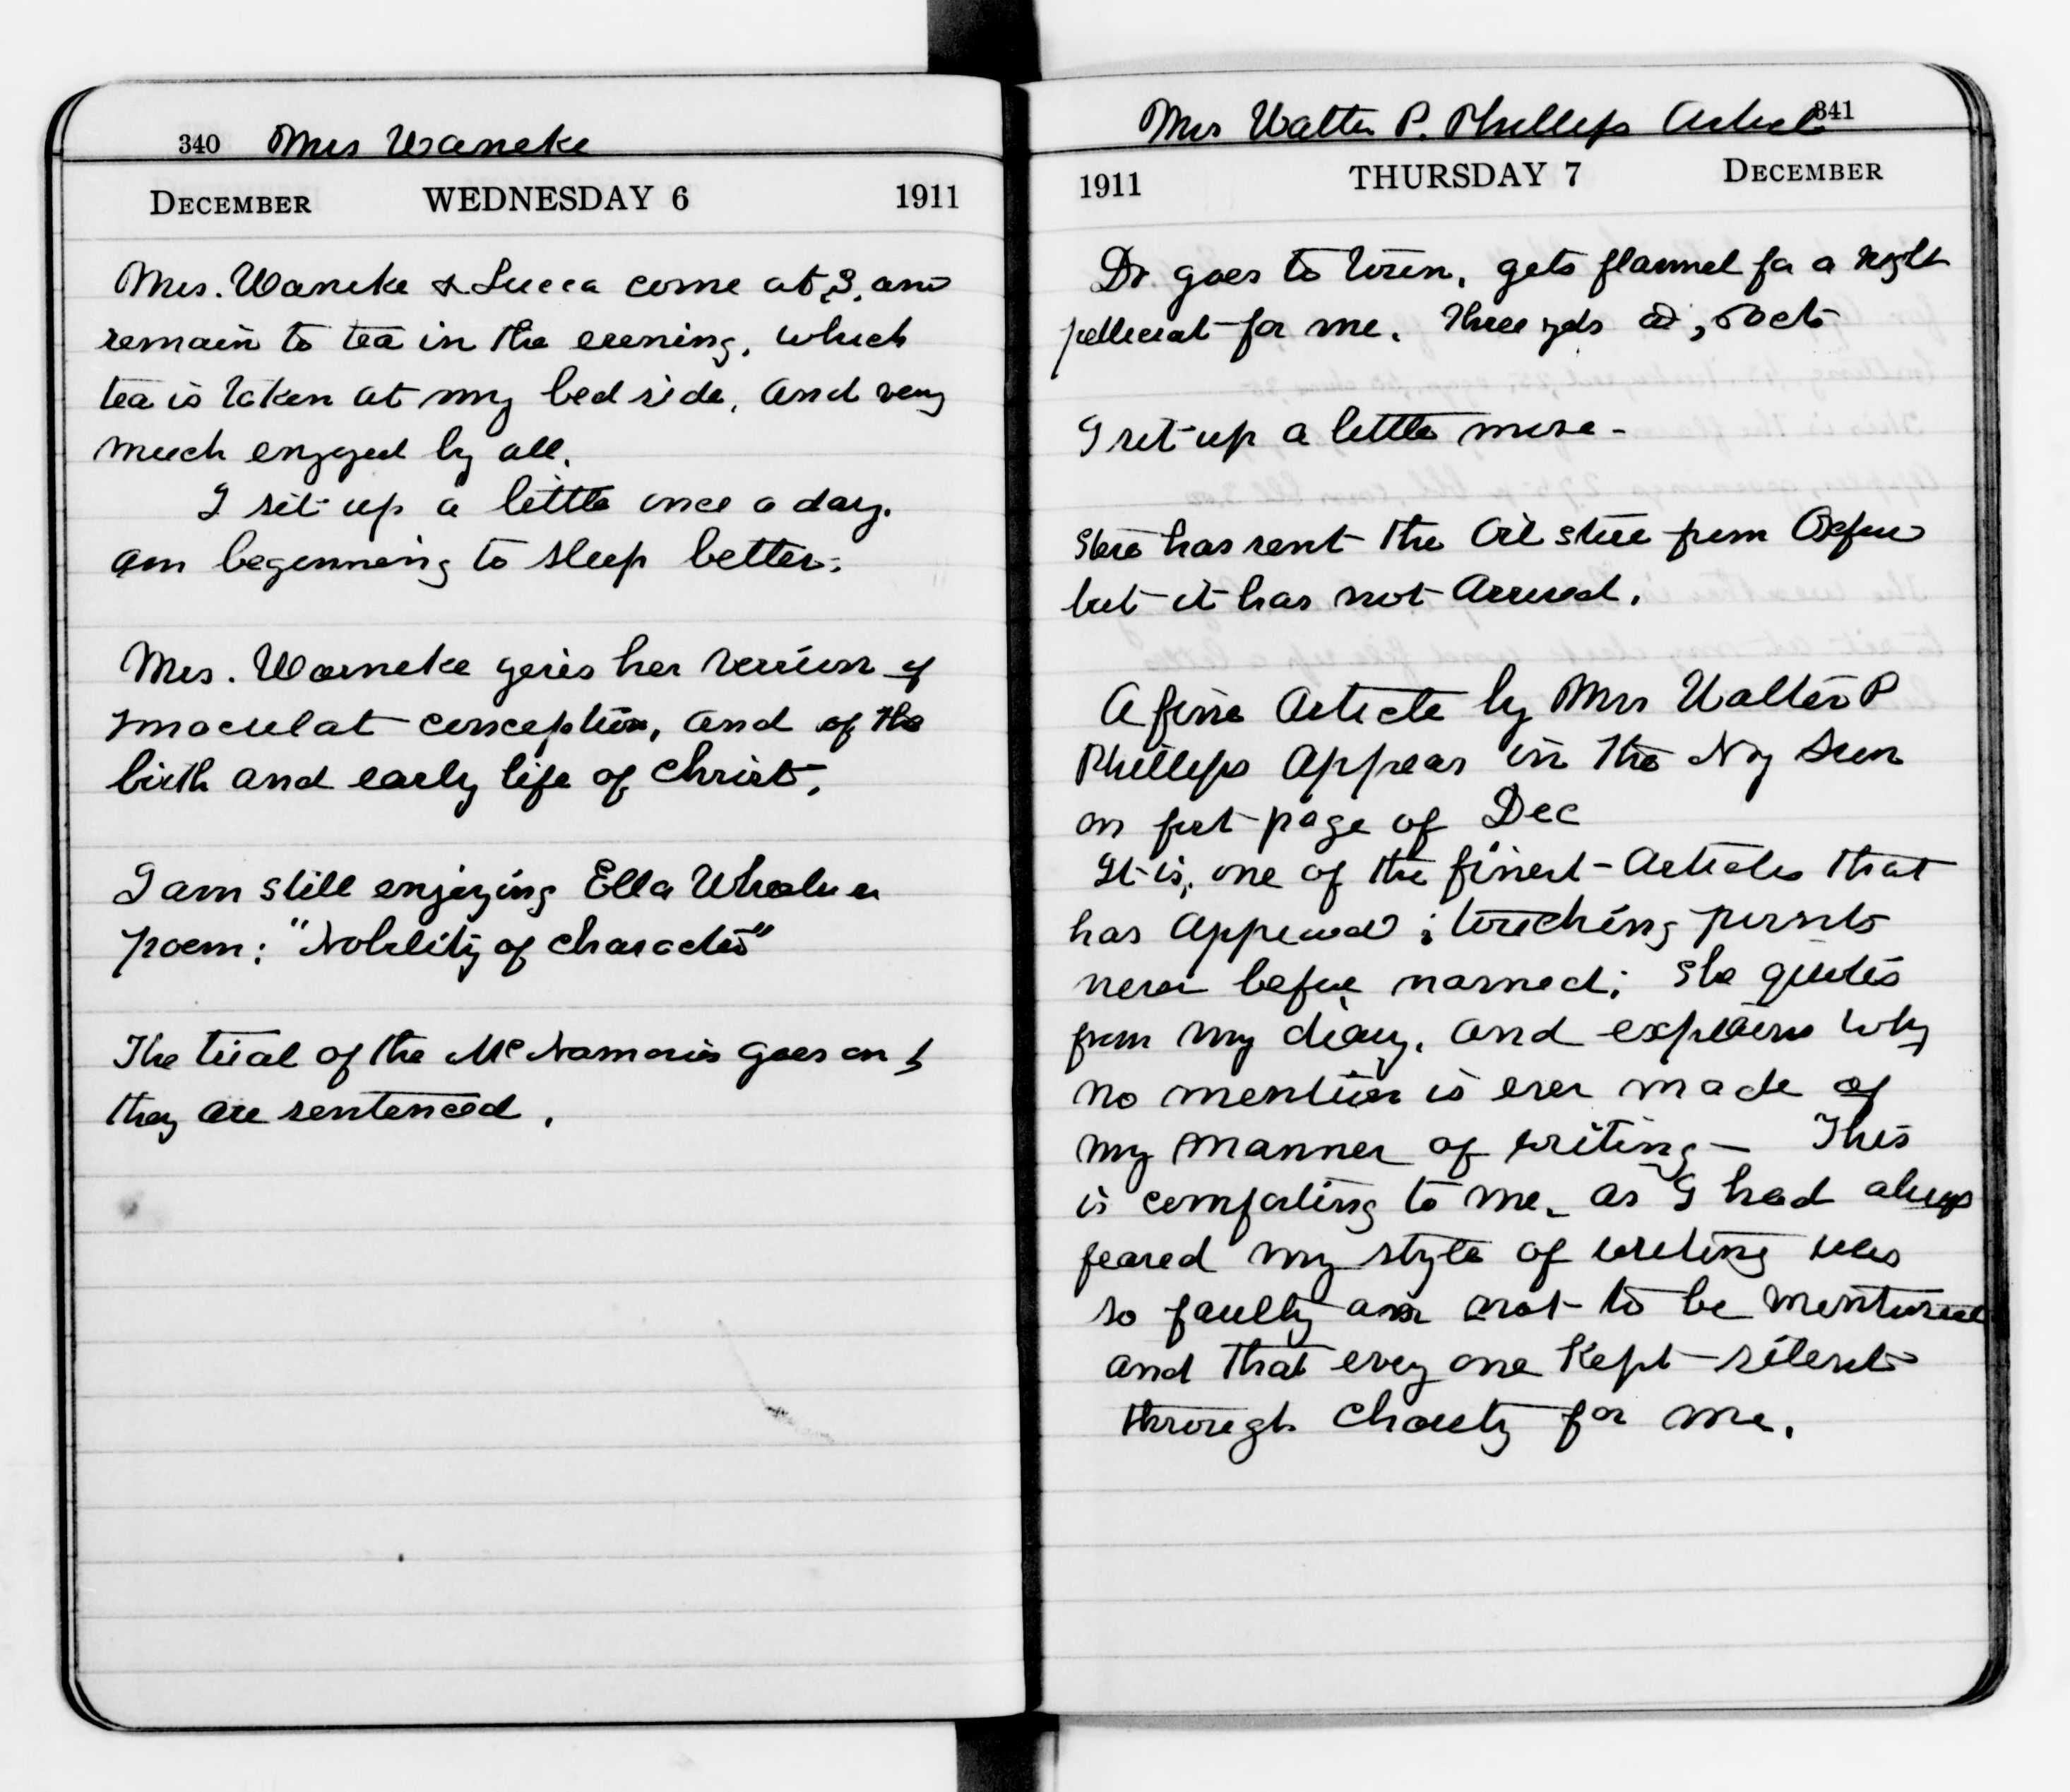 340 Mrs Waneke
DECEMBER WEDNESDAY 6 1911
Mrs. Waneke & Lucca come at 3, and
remain to tea in the evening, which
tea is taken at my bed side, and very
much enjoyed by all.
I sit up a little once a day.
am beginning to sleep better.
Mrs. Warneke gives her version of
Imaculat conception, and of the
birth and early life of Christ.
I am still enjoying Ella Wheeler
poem: "Nobility of character"
The trial of the McNamaris goes on &
they are sentenced.
Mrs Walter P. Phillips Article 341
1911 THURSDAY 7 DECEMBER
Dr. goes to town, gets flannel for a night
petticoat for me. Three yds at, 50cts
I sit up a little more -
Stere has sent the Oil stove from Oxford
but it has not Arrived.
A fine Article by Mrs Walter P
Phillips Appears in the Ny Sun
on first page of Dec
It is, one of the finest - Articles that
has Appeared; touching points
never before named; She quotes
from my diary, and explains why
no mention is ever made of
my manner of writing - This
is comforting to me, as I had always
feared my style of writing was
so faulty as not to be mentioned
and that every one Kept silent
through Charity for me.